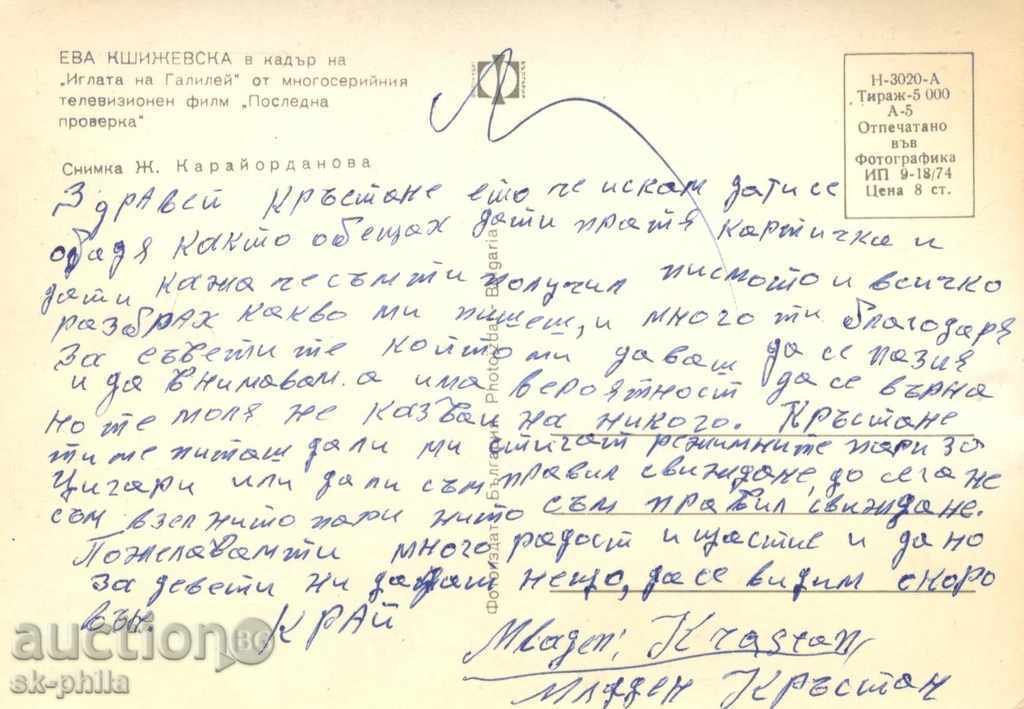 ЕВА КШИЖЕВСКА в кадър на
„Иглата на Галилей" от многосерийния
телевизионен филм „Последна
проверка"
Снимка Ж. Карайорданова
Н-3020-А
Тираж-5 000
А-5
Отпечатано
във
Фотографика
ИП 9-18/74
Цена 8 ст.
Здравей Кръстане ето че искам дати се
обадя както обещах дати пратя картичка и
дати кажа че съм ти получил писмото и всичко
разбрах какво ми пишеш, и много ти благодаря
За съветите които ми даваш да се пазя
и да внимавам. а има вероятност да се върна
но те моля не казвай на никого. Кръстане
ти ме питаш дали ми стигат режимните пари за
Цигари или дали съм правил свиждане, до сега не
съм взел нито пари нито съм правил свиждане.
Пожелавам ти много радост и щастие и дано
За девети ни дадат нещо, да се видим скоро
вън. КРАЙ
Младен, Krastan
Младен Кръстан
Фотоиздат България Photoizdat Bulgaria
auction BG
sk-phila